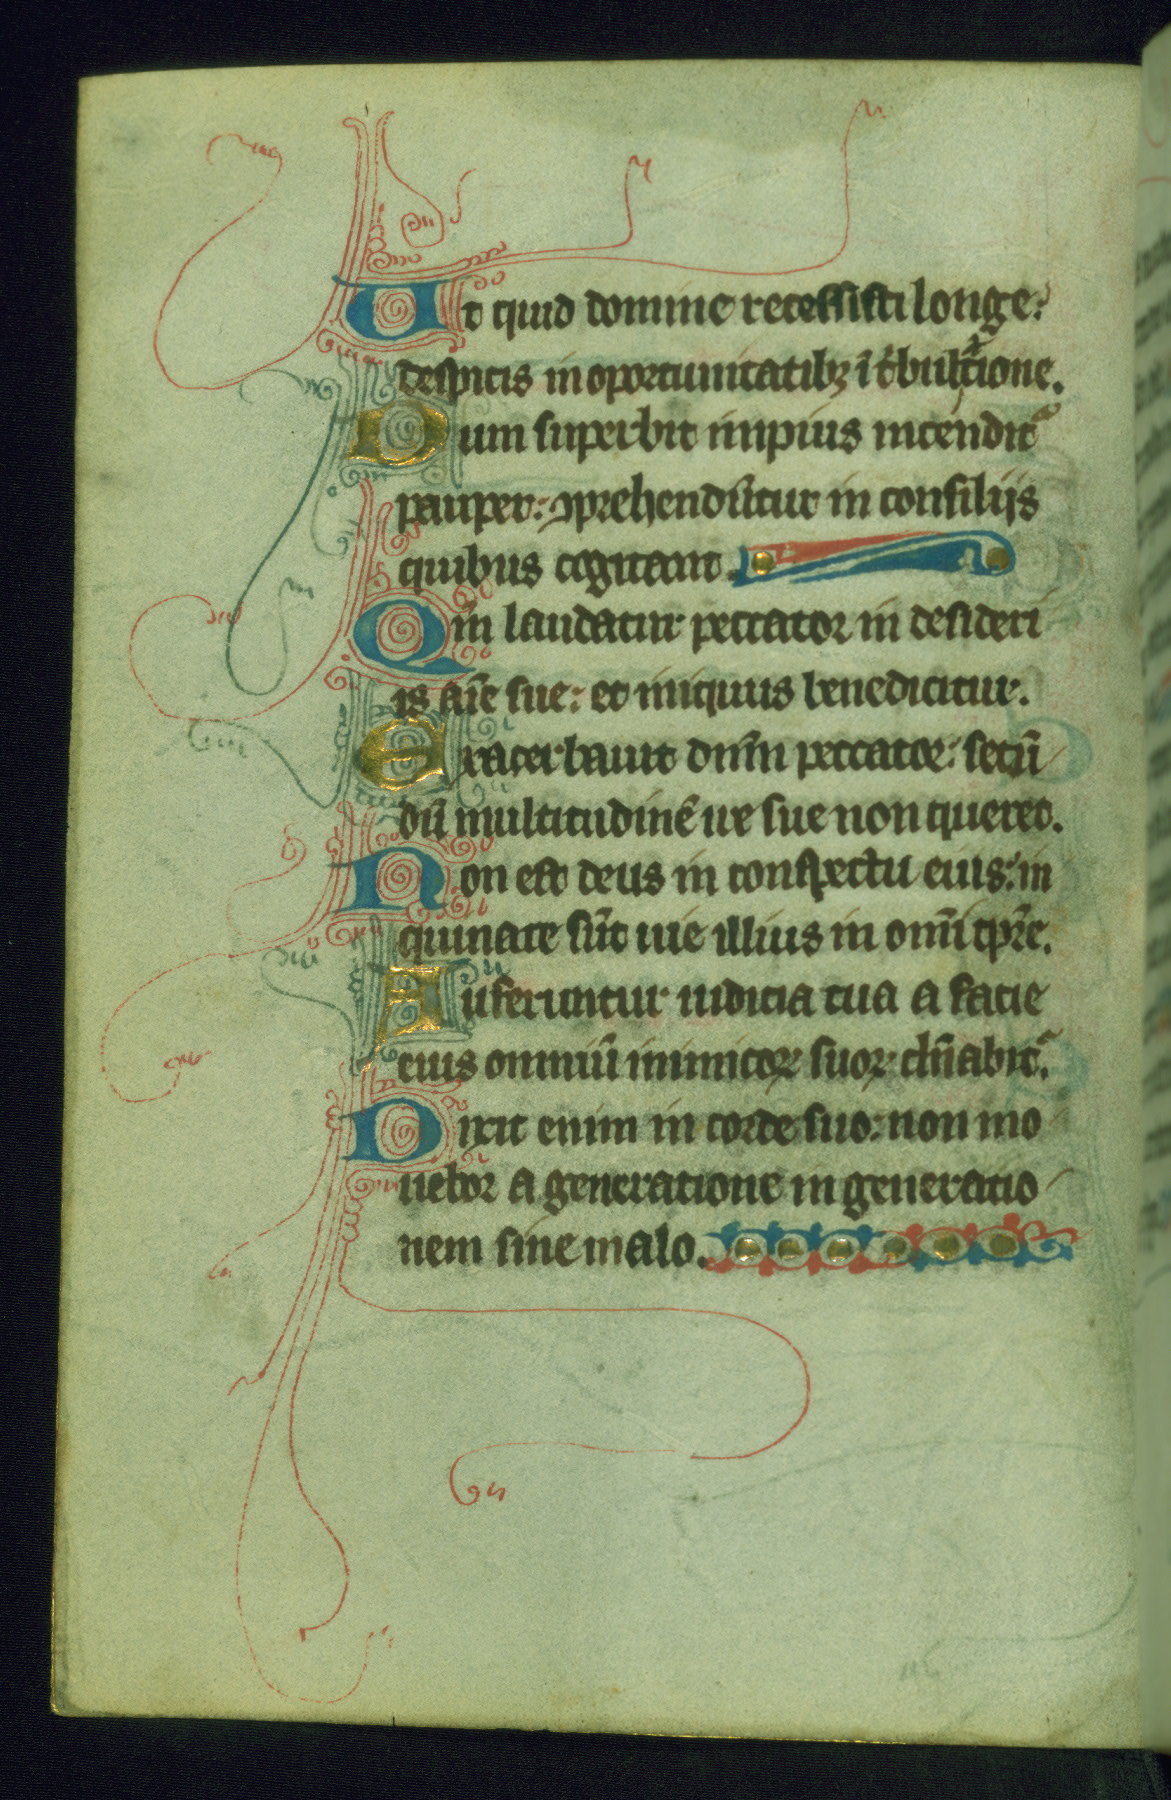 Ut quid domine recessisti longe:
despicis in oportunitatibꝫ ī t̕bulat̄ione.
Dum superbit impius incendit᷑
pauper: ꝯprehendūtur in consilijs
quibus cogitant.
Qm̄ laudatur peccator in desideri
is aīe sue: et iniquus benedicitur.
Exacerbauit dn̄m peccator: secū
dū multitudinē ire sue non queret.
Non est deus in conspectu eius: in
quinate sūt uie illius in omī tp̄re.
Auferuntur iudicia tua a facie
eius omniū inimicoꝝ suoꝝ dn̄abit᷑.
Dixit enim in corde suo: non mo
uebor a generatione in generatio
nem sine malo.